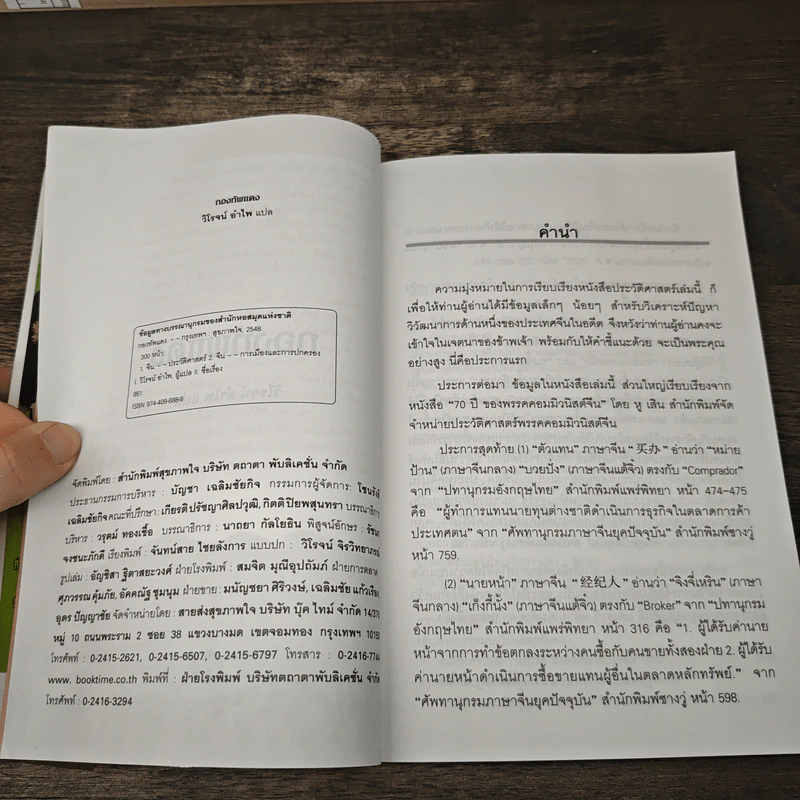 กองทัพแดง
วิโรจน์ อำไพ แปล
ข้อมูลทางบรรณานุกรมของสำนักหอสมุดแห่งชาติ
กองทัพแดง. -- กรุงเทพฯ : สุขภาพใจ, 2548.
300 หน้า.
1. จีน -- ประวัติศาสตร์ 2. จีน -- การเมืองและการปกครอง
I. วิโรจน์ อำไพ, ผู้แปล II. ชื่อเรื่อง
951
ISBN 974-409-688-8
จัดพิมพ์โดย : สำนักพิมพ์สุขภาพใจ บริษัท ตถาตา พับลิเคชั่น จำกัด
ประธานกรรมการบริหาร : บัญชา เฉลิมชัยกิจ กรรมการผู้จัดการ: โชนรังสี
เฉลิมชัยกิจ คณะที่ปรึกษา : เกียรติปรัชญาศิลปวุฒิ, กิตติปิยพสุนทรา บรรณาธิการ
บริหาร : วรุตม์ ทองเชื้อ บรรณาธิการ : นาถยา กัลโยธิน พิสูจน์อักษร : รัชน
จงชนะภักดี เรียงพิมพ์ : จันทน์สาย ไชยลังการ แบบปก : วิโรจน์ จิรวิทยาภรณ์
รูปเล่ม : อัญชิสา ฐิตาสยะวงศ์ ฝ่ายโรงพิมพ์ : สมจิต มุณีอุปถัมภ์ ฝ่ายการตลาด
ศุภวรรณ คุ้มภัย, อัคคณัฐ ชุมนุม ฝ่ายขาย : มนัญชยา ศิริวงษ์, เฉลิมชัย แก้วเรือง
อุดร ปัญญาชัย จัดจำหน่ายโดย : สายส่งสุขภาพใจ บริษัท บุ๊ค ไทม์ จำกัด 14/370
หมู่ 10 ถนนพระราม 2 ซอย 38 แขวงบางมด เขตจอมทอง กรุงเทพฯ 10150
โทรศัพท์ : 0-2415-2621, 0-2415-6507, 0-2415-6797 โทรสาร : 0-2416-774
www. booktime.co.th พิมพ์ที่ : ฝ่ายโรงพิมพ์ บริษัทตถาตาพับลิเคชั่น จำกัด
โทรศัพท์ : 0-2416-3294
คำนำ
ความมุ่งหมายในการเรียบเรียงหนังสือประวัติศาสตร์เล่มนี้ ก็
เพื่อให้ท่านผู้อ่านได้มีข้อมูลเล็กๆ น้อยๆ สำหรับวิเคราะห์ปัญหา
วิวัฒนาการด้านหนึ่งของประเทศจีนในอดีต จึงหวังว่าท่านผู้อ่านคงจะ
เข้าใจในเจตนาของข้าพเจ้า พร้อมกับให้คำชี้แนะด้วย จะเป็นพระคุณ
อย่างสูง นี่คือประการแรก
ประการต่อมา ข้อมูลในหนังสือเล่มนี้ ส่วนใหญ่เรียบเรียงจาก
หนังสือ "70 ปี ของพรรคคอมมิวนิสต์จีน" โดย หู เสิน สำนักพิมพ์จัด
จำหน่ายประวัติศาสตร์พรรคคอมมิวนิสต์จีน
ประการสุดท้าย (1) "ตัวแทน" ภาษาจีน "买办" อ่านว่า "หม่าย
ป้าน" (ภาษาจีนกลาง) "บวยปั๋ง" (ภาษาจีนแต้จิ๋ว) ตรงกับ "Comprador"
จาก "ปทานุกรมอังกฤษไทย" สำนักพิมพ์แพร่พิทยา หน้า 474-475
คือ "ผู้ทำการแทนนายทุนต่างชาติดำเนินการธุรกิจในตลาดการค้า
ประเทศตน" จาก "ศัพทานุกรมภาษาจีนยุคปัจจุบัน" สำนักพิมพ์ซางวู่
หน้า 759.
(2) "นายหน้า" ภาษาจีน "经纪人" อ่านว่า "จิงจี่เหริน" (ภาษา
จีนกลาง) "เก็งกี้นั้ง" (ภาษาจีนแต้จิ๋ว) ตรงกับ "Broker" จาก "ปทานุกรม
อังกฤษไทย" สำนักพิมพ์แพร่พิทยา หน้า 316 คือ "1. ผู้ได้รับค่านาย
หน้าจากการทำข้อตกลงระหว่างคนซื้อกับคนขายทั้งสองฝ่าย 2. ผู้ได้รับ
ค่านายหน้าดำเนินการซื้อขายแทนผู้อื่นในตลาดหลักทรัพย์." จาก
"ศัพทานุกรมภาษาจีนยุคปัจจุบัน" สำนักพิมพ์ซางวู่ หน้า 598.